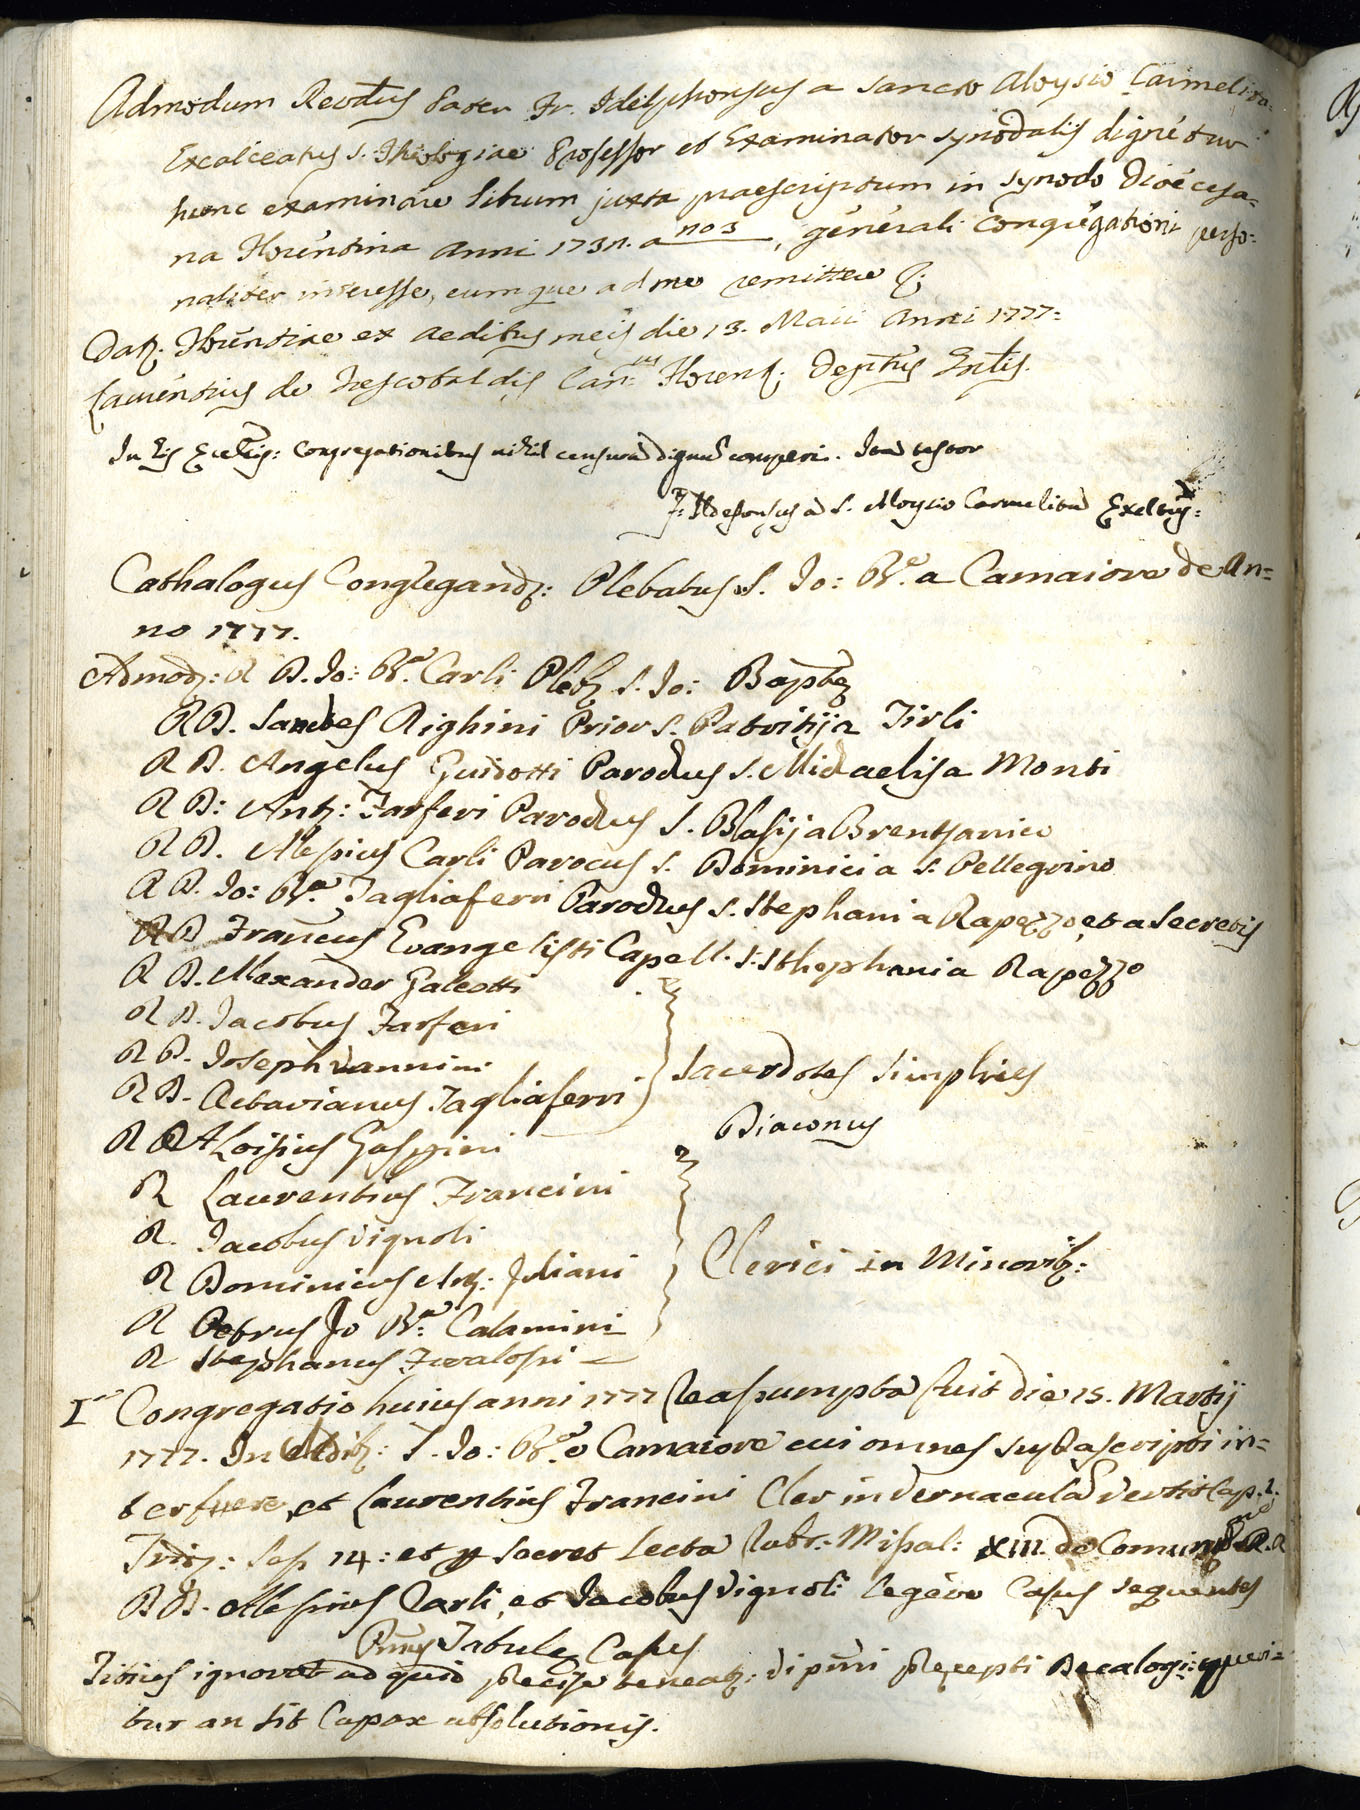 Admodum Revdus Pater Fr. Idelphonsus a sancto Aloysio Carmelita
Excalceatus S. Theologiae Professor et Examinator synodalis dignetur
hunc examinare librum juxta praescriptum in synodo Dioecesa=
na Florentina Anni 1732. a no 3, generali Congregationi perso=
naliter interesse, eumque ad me remittere
Dat. Florentiae ex aedibus meis die 13. Maii Anni 1777=
Laurentius de Frescobaldis Can:cus Florent. Deptus Entis.
In his Eccticis: Congregationibus nihil censura dignum comperi. Ita testor
F: Ildefonsus a S. Aloysio Carmelita Exctus:
Cathalogus Congregand: Plebatus S. Jo: Bta a Camaiore de An=
no 1777.
Admod: R D. Jo: Bta Carli Pleb S. Jo: Baptae
R D. Santes Righini Prior S. Patritij a Tirli
R D. Angelus Guidotti Parochus S. Michaelis a Monti
R D: Ant: Farferi Parochus S. Blasij a Brentsanico
R D. Alesius Carli Parocus S. Dominici a S. Pellegrino
R D. Jo: Bta Tagliaferri Parochus S. Stephani a Rapezzo, et a Secretis
R D Francus Evangelisti Capell. S. Sthephani a Rapezzo
R D. Alexander Galeotti
R D. Jacobus Farferi
R D. Joseph Vannini
R D. Octavianus Tagliaferri
Sacerdotes simplices
R D Aloisius Gaspini
Diaconus
R Laurentius Francini
R. Jacobus Vignoli
R Dominicus Ant. Juliani
R Petrus Jo Bta: Calamini
R Stephanus
Clerici in Minorib:
Ia Congregatio huius anni 1777 Reassumpta fuit die 15. Martij
1777. In Aedib: S. Jo: Bta e Camaiore cui omnes supra scripti in=
terfuere, et Laurentius Francini Cler in vernacula vertit Cap. 2.
Trid: Ses 14: et p secret Lecta Rubr: Missal: XIII. de Comunione R. R
D D. Alesius Carli, et Jacobus Vignoli legere Casus sequentes
Primus Tabulae Casus
Titius ignorat ad quid precise teneat: vi primi precepti Decalogi: queri=
tur an sit Capax absolutionis.